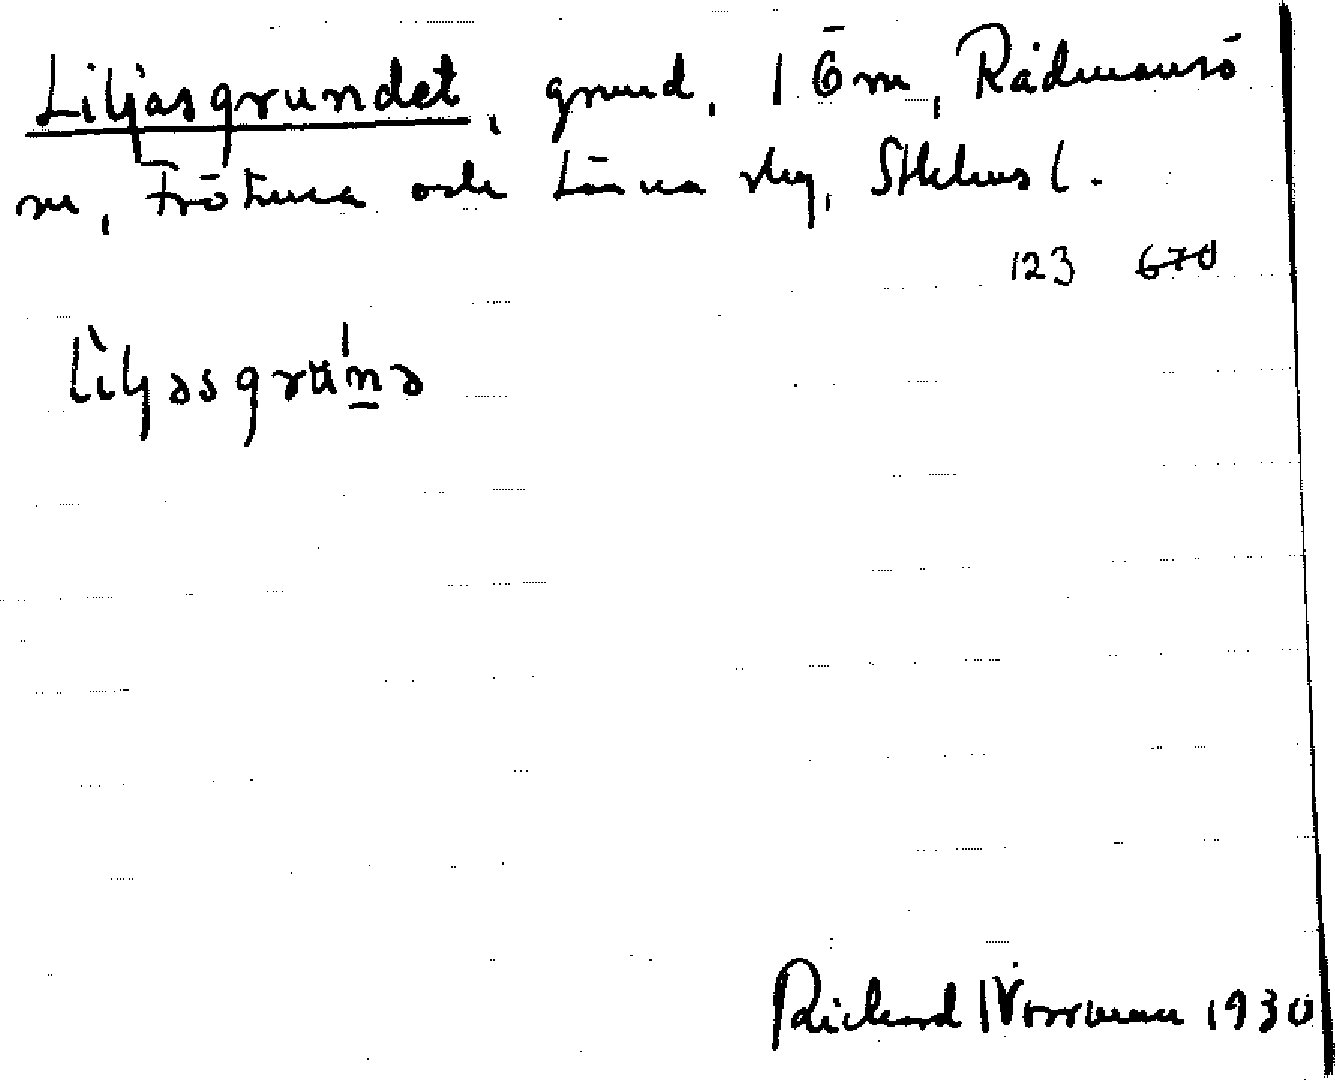 Liljasgrundet, grund, 1 6 m, Rådmansö
sn, Frötuna och Länna skg, Sthlms l.
123 670
Lìljasgru̍n̠ə
Richard 1930